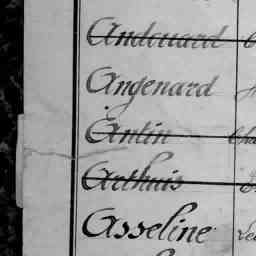 Andouard
Angenard
Antin Cha
Arthuis
Asseline Le